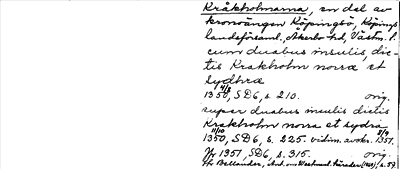 Kråkholmarna, en del av
kronoängen Köpingsö, Köpings
landsförsaml., Åkerbo hd, Västm. l.
cum duabus insulis, dic-
tis Krakholm norra et
sydhra
1350 4/8, SD6, s. 210. orig.
super duabus insulis dictis
Krakholm norra et sydra
1350 11/10, SD6, s. 225. vidim. avskr. 1351.
Jfr 1351, SD6, s. 315. orig.
Jfr Bellander, s. 59.